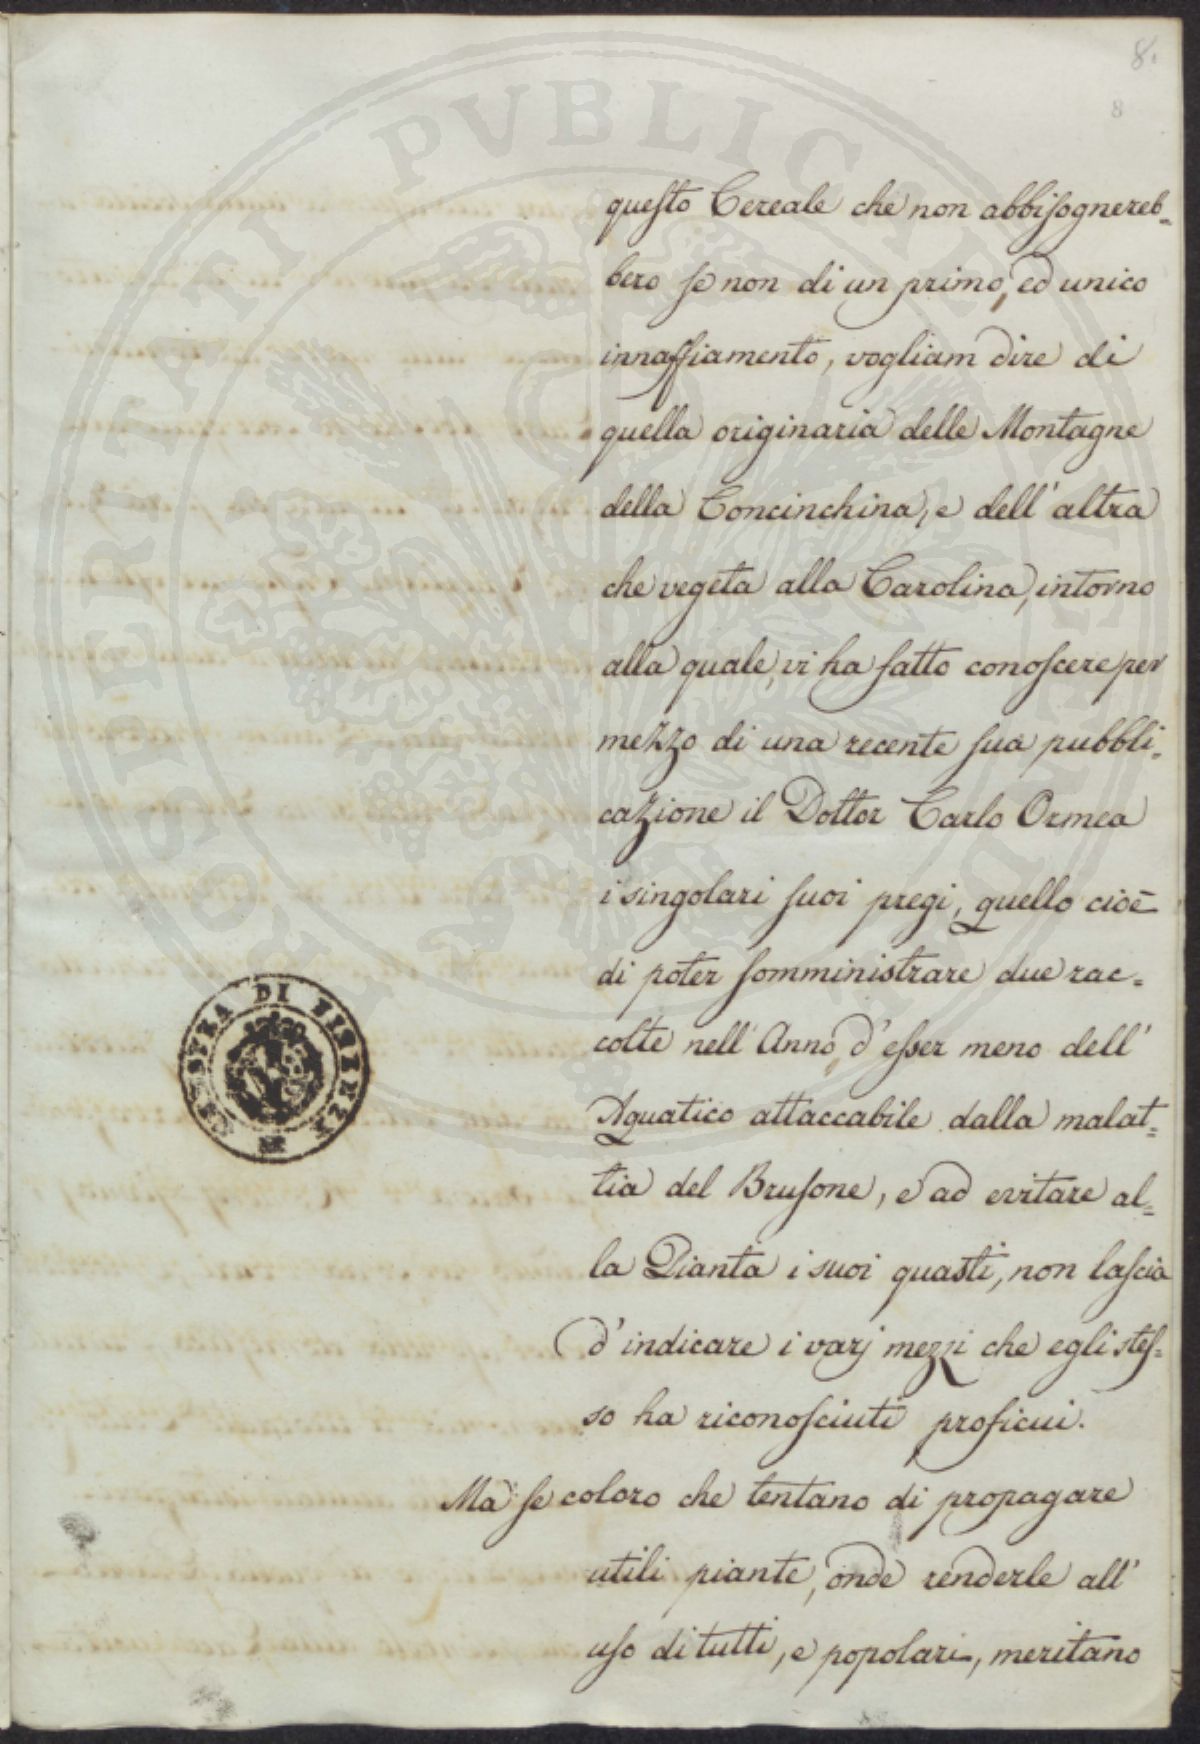 8.
8
questo Cereale che non abbisognereb=
bero se non di un primo, ed unico
innaffiamento, vogliam dire di
quella originaria delle Montagne
della Concinchina, e dell' altra
che vegeta alla Carolina, intorno
alla quale, vi ha fatto conoscere per
mezzo di una recente sua pubbli=
cazione il Dottor Carlo Ormea
i singolari suoi pregi, quello cioè
di poter somministrare due rac=
colte nell' Anno, d' esser meno dell'
Aquatico attaccabile dalla malat=
tia del Brusone, e ad evitare al=
la Pianta i suoi guasti, non lascia
d' indicare i varj mezzi che egli stes=
so ha riconosciuti proficui.
Ma se coloro che tentano di propagare
utili piante, onde renderle all'
uso di tutti, e popolari, meritano
PROSPERITATI PVBLICAE
DI FIRENZE